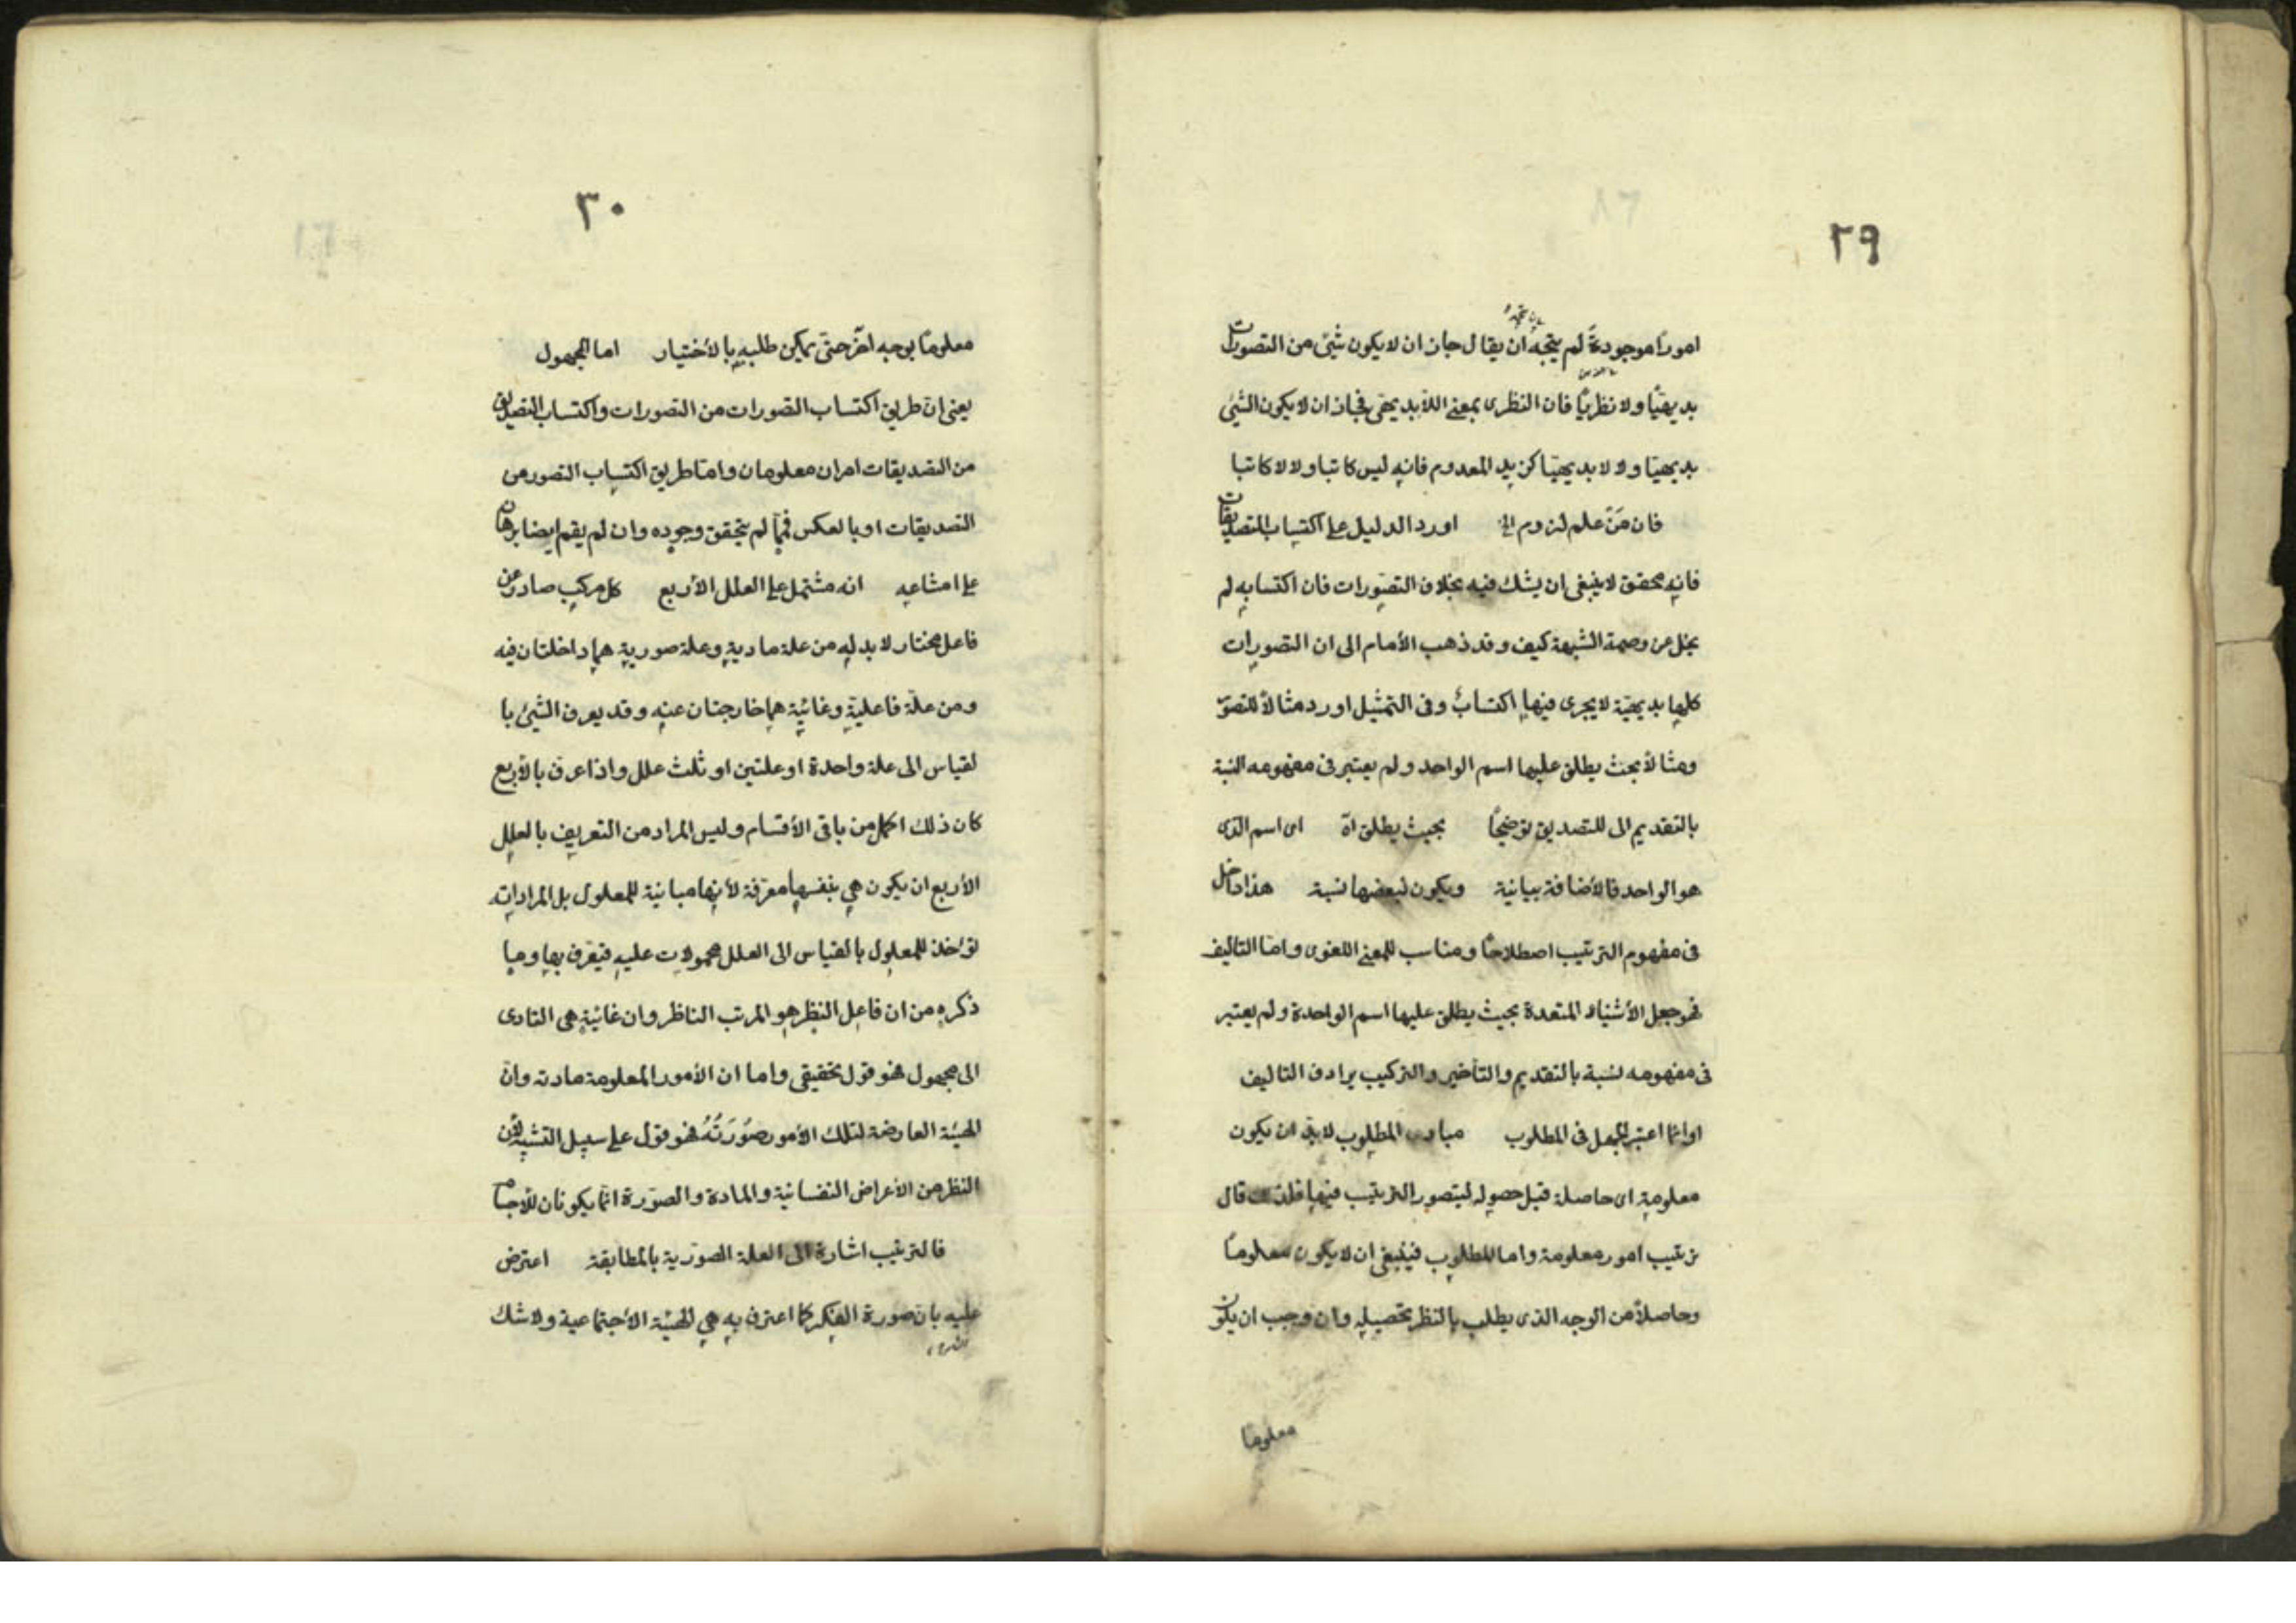 ٢٩
امورا موجودة لم يتجه ان يقال جاز ان لا يكون شئ من التصورات
بديهيّا ولا نظريّا فان النظرى بمعنى اللابديهى فجاز ان لا يكون الشئ
بديهيّا ولا لا بديهيّا كزيد المعدوم فانه ليس كاتبا ولا لا كاتبا
فان مَن علم لزوم الخ اورد الدليل على اكتساب التصديقات
فانه محقق لا ينبغى ان يشك فيه بخلاف التصورات فان اكتسابه لم
يخل عن وصمة الشبهة كيف وقد ذهب الأمام الى ان التصورات
كلها بديهيّة لا يجرى فيها اكتسابٌ وفى التمثيل اورد مثالاً للتصوّر
ومثالاً بحيث يطلق عليها اسم الواحد ولم يعتبر فى مفهومه النسبة
بالتقديم الى للتصديق توضيحًا بحيث يطلق اه اى اسم الذى
هو الواحد فالأضافة بيانية ويكون لبعضها نسبة هذا داخل
فى مفهوم الترتيب اصطلاحًا ومناسب للمعنى اللغوى وامّا التاليف
فهو جعل الأشياء المتعددة بحيث يطلق عليها اسم الواحدة ولم يعتبر
فى مفهومه نسبة بالتقديم والتأخير والتركيب يرادف التاليف
او انما اعتبر الجهل فى المطلوب مبادى المطلوب لا بدّ ان يكون
معلومة اى حاصلة قبل حصوله ليتصور الترتيب فيها فلذلك قال
ترتيب امور معلومة واما المطلوب فينبغى ان لا يكون معلومًا
وحاصلاً من الوجه الذى يطلب بالنظر تحصيله وان وجب ان يكون
معلومًا
٣٠
معلومًا بوجه آخر حتى يمكن طلبه بالأختيار اما المجهول
يعنى ان طريق اكتساب التصورات من التصورات واكتساب التصديق
من التصديقات امران معلومان وامّا طريق اكتساب التصور من
التصديقات او بالعكس فممّا لم يتحقق وجوده وان لم يقم ايضا برهان
على امتناعه انه مشتمل على العلل الأربع كل مركب صادر عن
فاعل مختار لا بد له من علة مادية وعلة صورية هما داخلتان فيه
ومن علة فاعلية وغائية هما خارجتان عنه وقد يعرف الشئ با
لقياس الى علة واحدة او علتين او ثلث علل واذا عرف بالأربع
كان ذلك اكمل من باقى الأقسام وليس المراد من التعريف بالعلل
الأربع ان يكون هى بنفسها معرّفة لأنها مباينة للمعلول بل المراد انه
تؤخذ للمعلول بالقياس الى العلل محمولات عليه فيعرف بها وما
ذكره من ان فاعل النظر هو المرتب الناظر وان غائية هى التادى
الى مجهول فهو قول تحقيقى واما ان الأمور المعلومة مادته وانّ
الهيئة العارضة لتلك الأمور صُورَتُهُ فهو قول على سبيل التشبيه لأن
النظر من الأعراض النفسانية والمادة والصورة انّما يكونان للأجسام
فالترتيب اشارة الى العلة الصورية بالمطابقة اعترض
عليه بان صورة الفكر كما اعترف به هى الهيئة الأجتماعية ولا شك